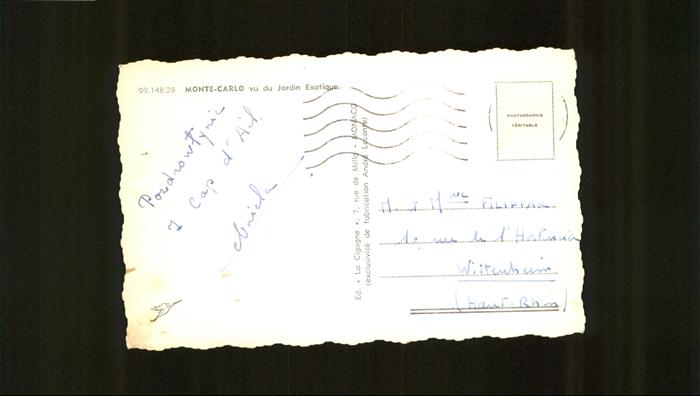 99.148.28 MONTE-CARLO vu du Jardin Exotique.
z Cap d'Ail
Ed. « La Cigogne », 7, rue de Millo - MONACO
(exclusivité de fabrication André Leconte)
PHOTOGRAPHIE
VÉRITABLE
M. et Mme
rue de l'
Wittenheim
(Haut-Rhin)